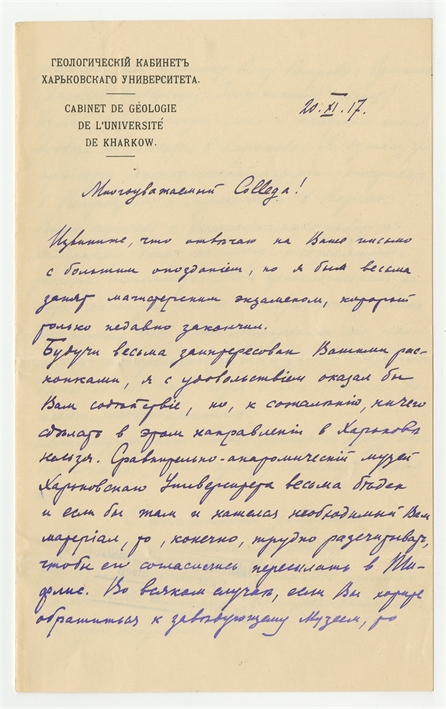 ГЕОЛОГИЧЕСКІЙ КАБИНЕТЪ
ХАРЬКОВСКАГО УНИВЕРСИТЕТА.
CABINET DE GÉOLOGIE
DE L'UNIVERSITÉ
DE KHARKOW.
20. XI. 17.
Многоуважаемый Collega!
Извините, что отвѣчаю на Ваше письмо
с большим опозданіем, но я был весьма
занят магистерским экзаменом, который
только недавно закончил.
Будучи весьма заинтересован Вашими рас-
копками, я с удовольствіем оказал бы
Вам содѣйствіе, но, к сожалѣнію, ничего
сдѣлать в этом направленіи в Харьковѣ
нельзя. Сравнительно-анатомическій музей
Харьковскаго Университета весьма бѣден
и если бы там и нашелся необходимый Вам
матеріал, то, конечно, трудно разсчитывать,
чтобы его согласились пересылать в Тиф-
лис. Во всяком случаѣ, если Вы хотите
обратиться к завѣдующему Музеем, то